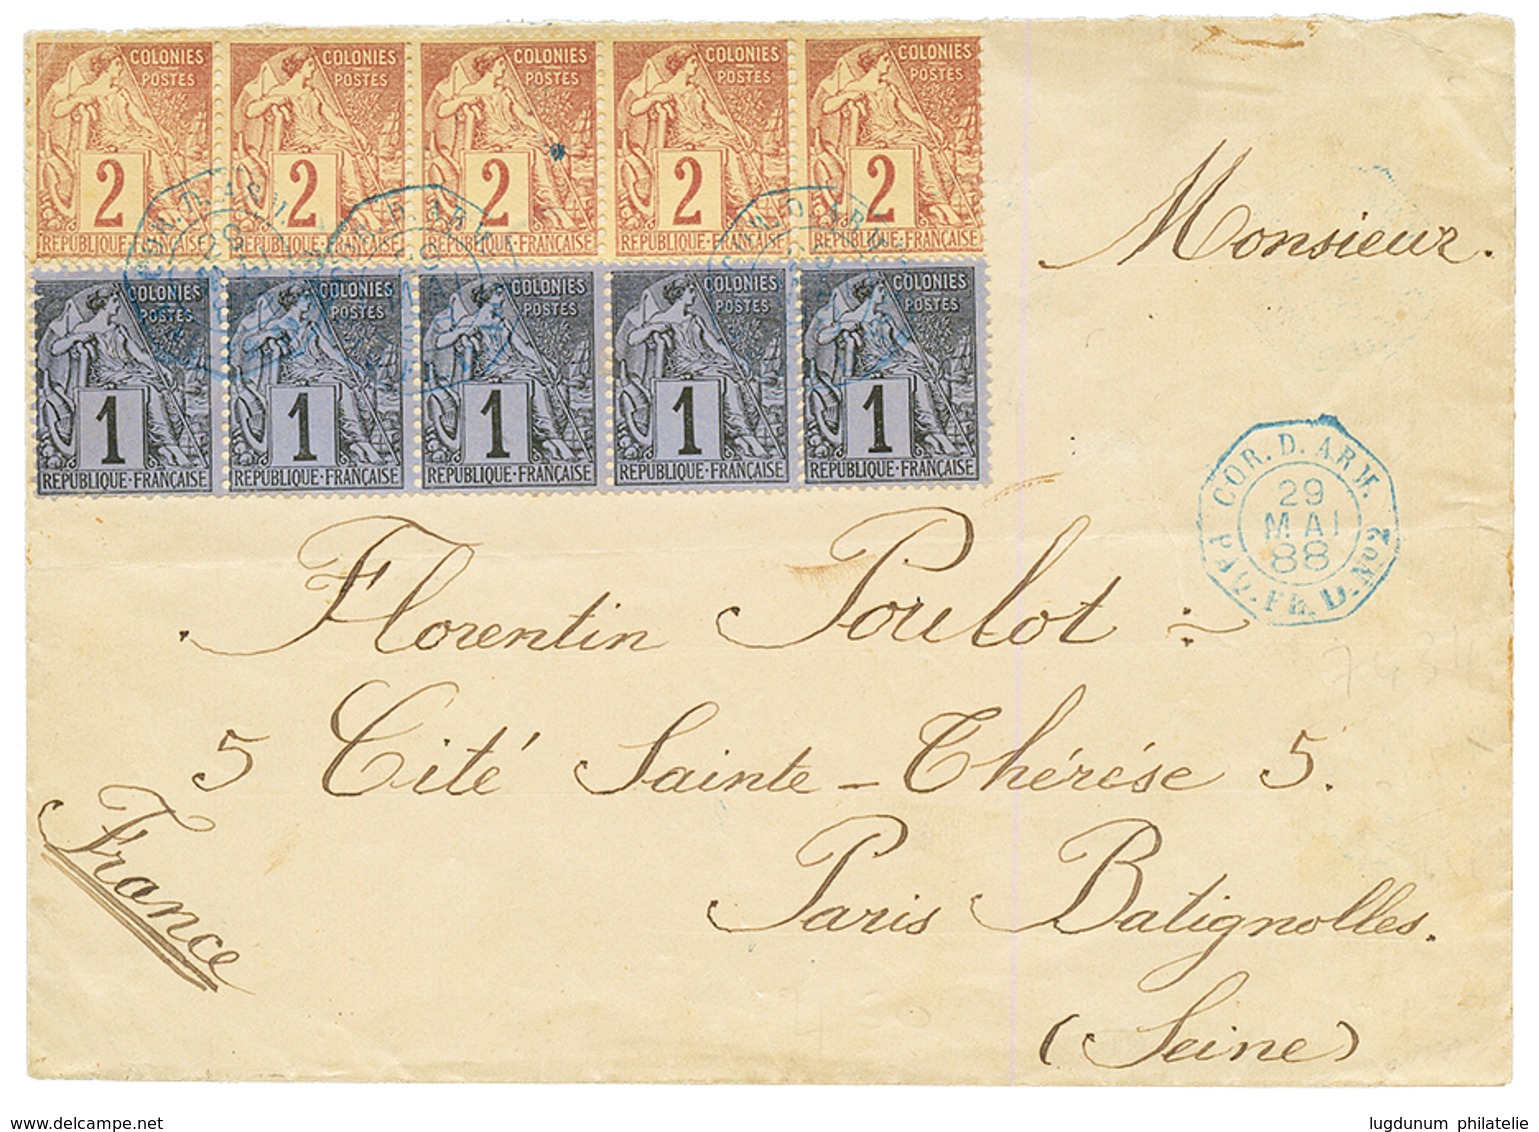 COLONIES COLONIES COLONIES COLONIES COLONIES
POSTES POSTES POSTES POSTES POSTES
2 2 2 2 2
REPUBLIQUE-FRANÇAISE REPUBLIQUE-FRANÇAISE REPUBLIQUE-FRANÇAISE REPUBLIQUE-FRANÇAISE REPUBLIQUE-FRANÇAISE
COLONIES COLONIES COLONIES COLONIES COLONIES
POSTES POSTES POSTES POSTES POSTES
1 1 1 1 1
REPUBLIQUE-FRANÇAISE REPUBLIQUE-FRANÇAISE REPUBLIQUE-FRANÇAISE REPUBLIQUE-FRANÇAISE REPUBLIQUE-FRANÇAISE
Monsieur.
COR. D. ARM.
29
MAI
88
PAQ. FR. D. Nº2
Florentin Poulot
5 Cité Sainte-Thérése 5.
Paris Batignolles.
(Seine)
France
www.delcampe.net
lugdunum philatelie